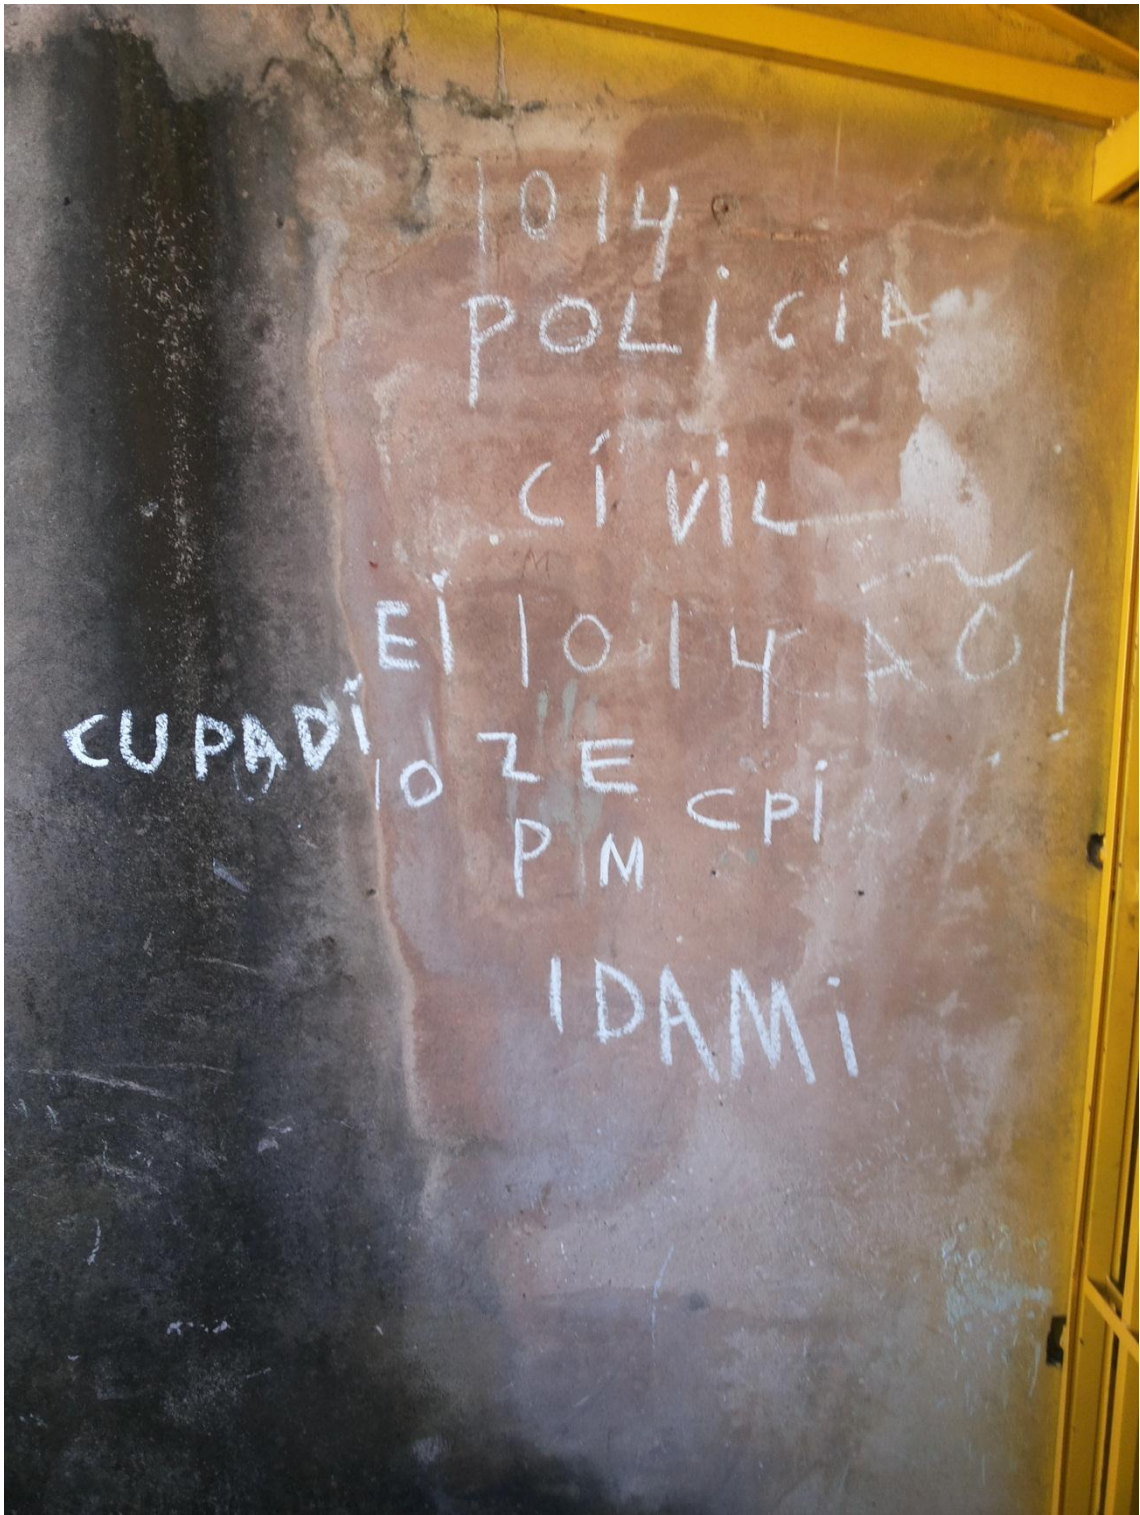 1014
POLiCiA
CiViL
Ei 1014 AÕ1
CUPADi
10 ZE CPi
PM
IDAMi